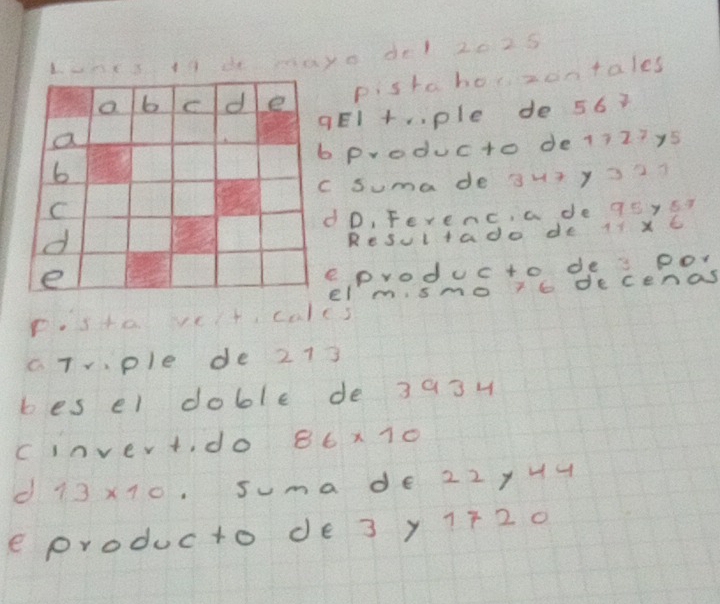 Lunes 19 de mayo del 2025
pista horizontales
a b c d e
a
b
c
d
e
a El triple de 567
b producto de 1727 y 5
c suma de 347 y 321
d Diferencia de 95 y
Resultado de 11 x 6
e producto de 3 por
el mismo 76 decenas
pista verticales
a Triple de 213
b es el doble de 3934
c invertido 86 x 10
d 13 x 10. suma de 22 y 44
e producto de 3 y 1720